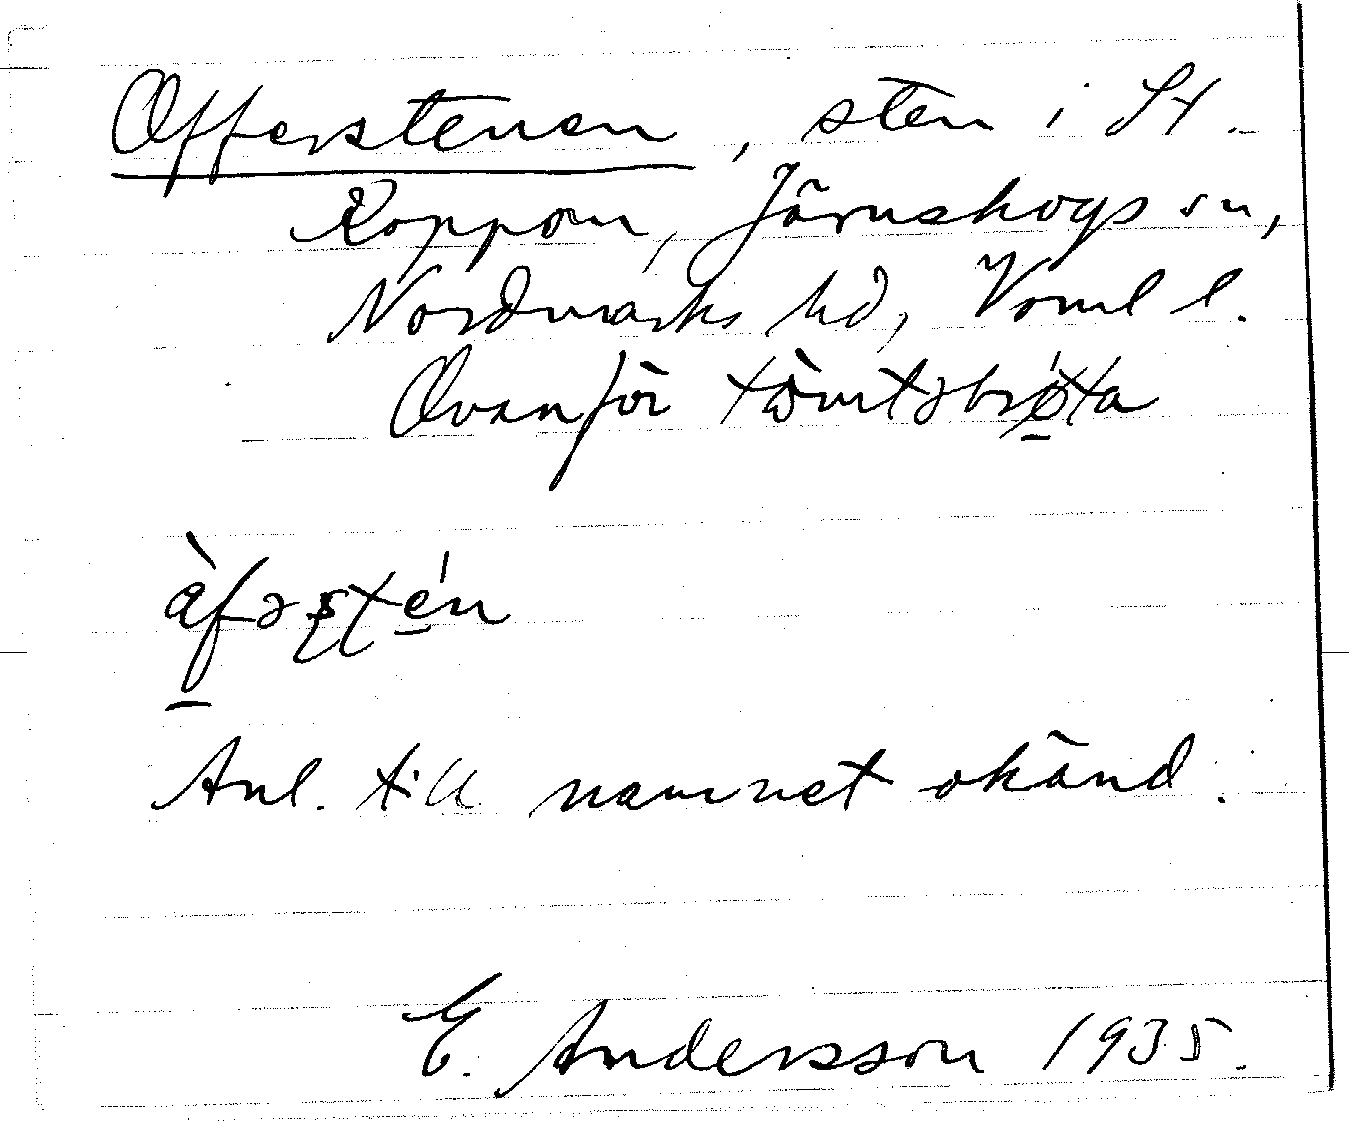 Offerstenen, sten i St.
Koppom, Järnskogs sn,
Nordmarks hd, Värml l.
Ovanför tòmtəbrǿ̱ta
àfəșté̱n
Anl. till namnet okänd.
E. Andersson 1935.